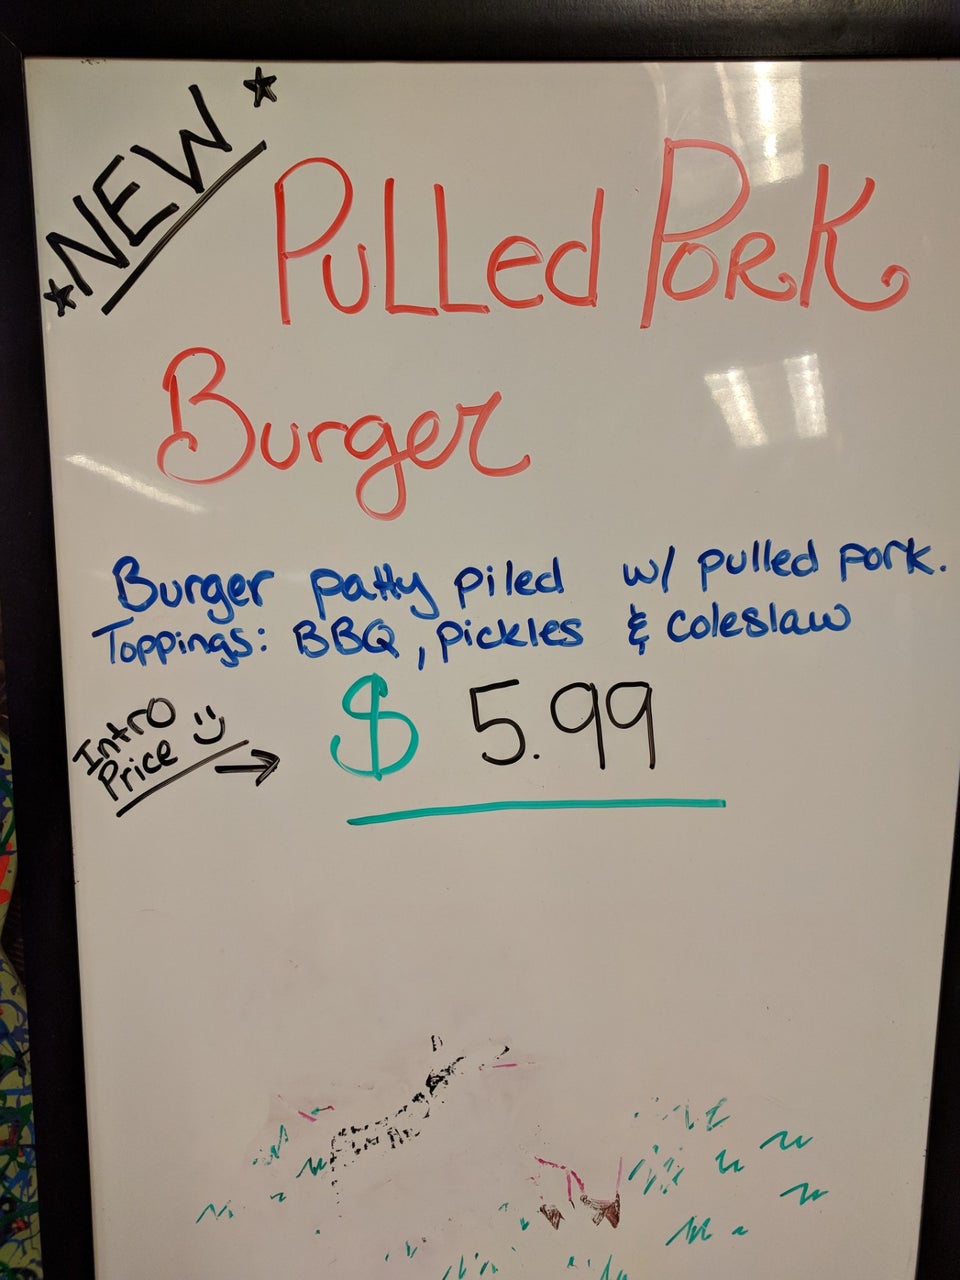 NEW
PuLLed PORK
Burger
Burger patty piled w/ pulled pork.
Toppings: BBQ, pickles & coleslaw
Intro
Price
$ 5.99